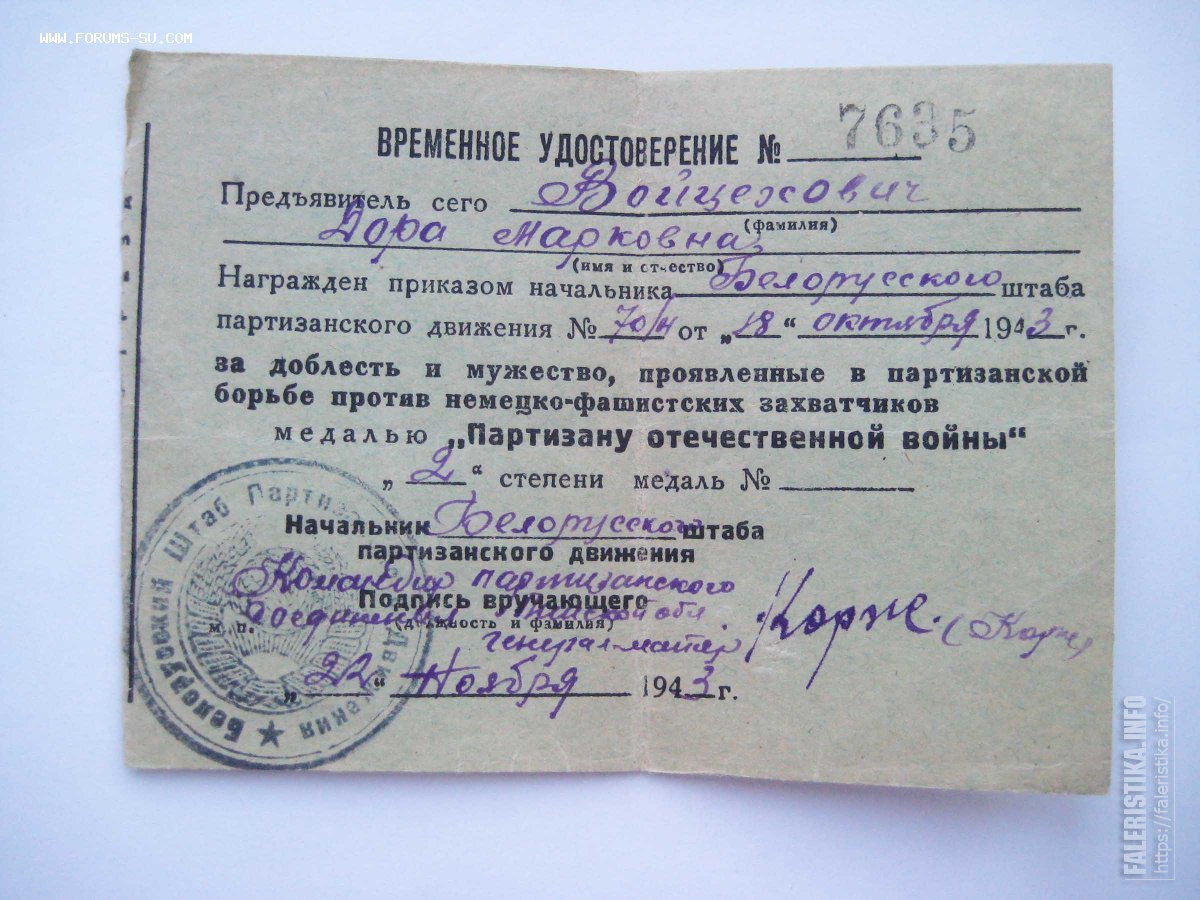 WWW.FORUMS-SU.COM
ВРЕМЕННОЕ УДОСТОВЕРЕНИЕ № 7635
Предъявитель сего Войцехович
(фамилия)
Дора Марковна
(имя и отчество)
Награжден приказом начальника Белорусского штаба
партизанского движения № 70/н от „18“ октября 1943 г.
за доблесть и мужество, проявленные в партизанской
борьбе против немецко-фашистских захватчиков
медалью „Партизану отечественной войны“
„2“ степени медаль №
Начальник Белорусского штаба
партизанского движения
Командир партизанского
Подпись вручающего
соединения Пинской обл.
м. п. (должность и фамилия)
генерал-майор Корж. (Корж)
„22“ Ноября 1943 г.
Белорусский Штаб Партизанского Движения
FALERISTIKA.INFO
https://faleristika.info/